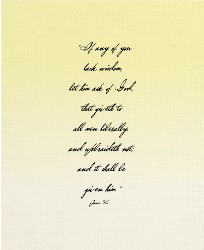 "If any of you
lack wisdom,
let him ask of God,
that giveth to
all men liberally,
and upbraideth not;
and it shall be
given him"
James 1:5